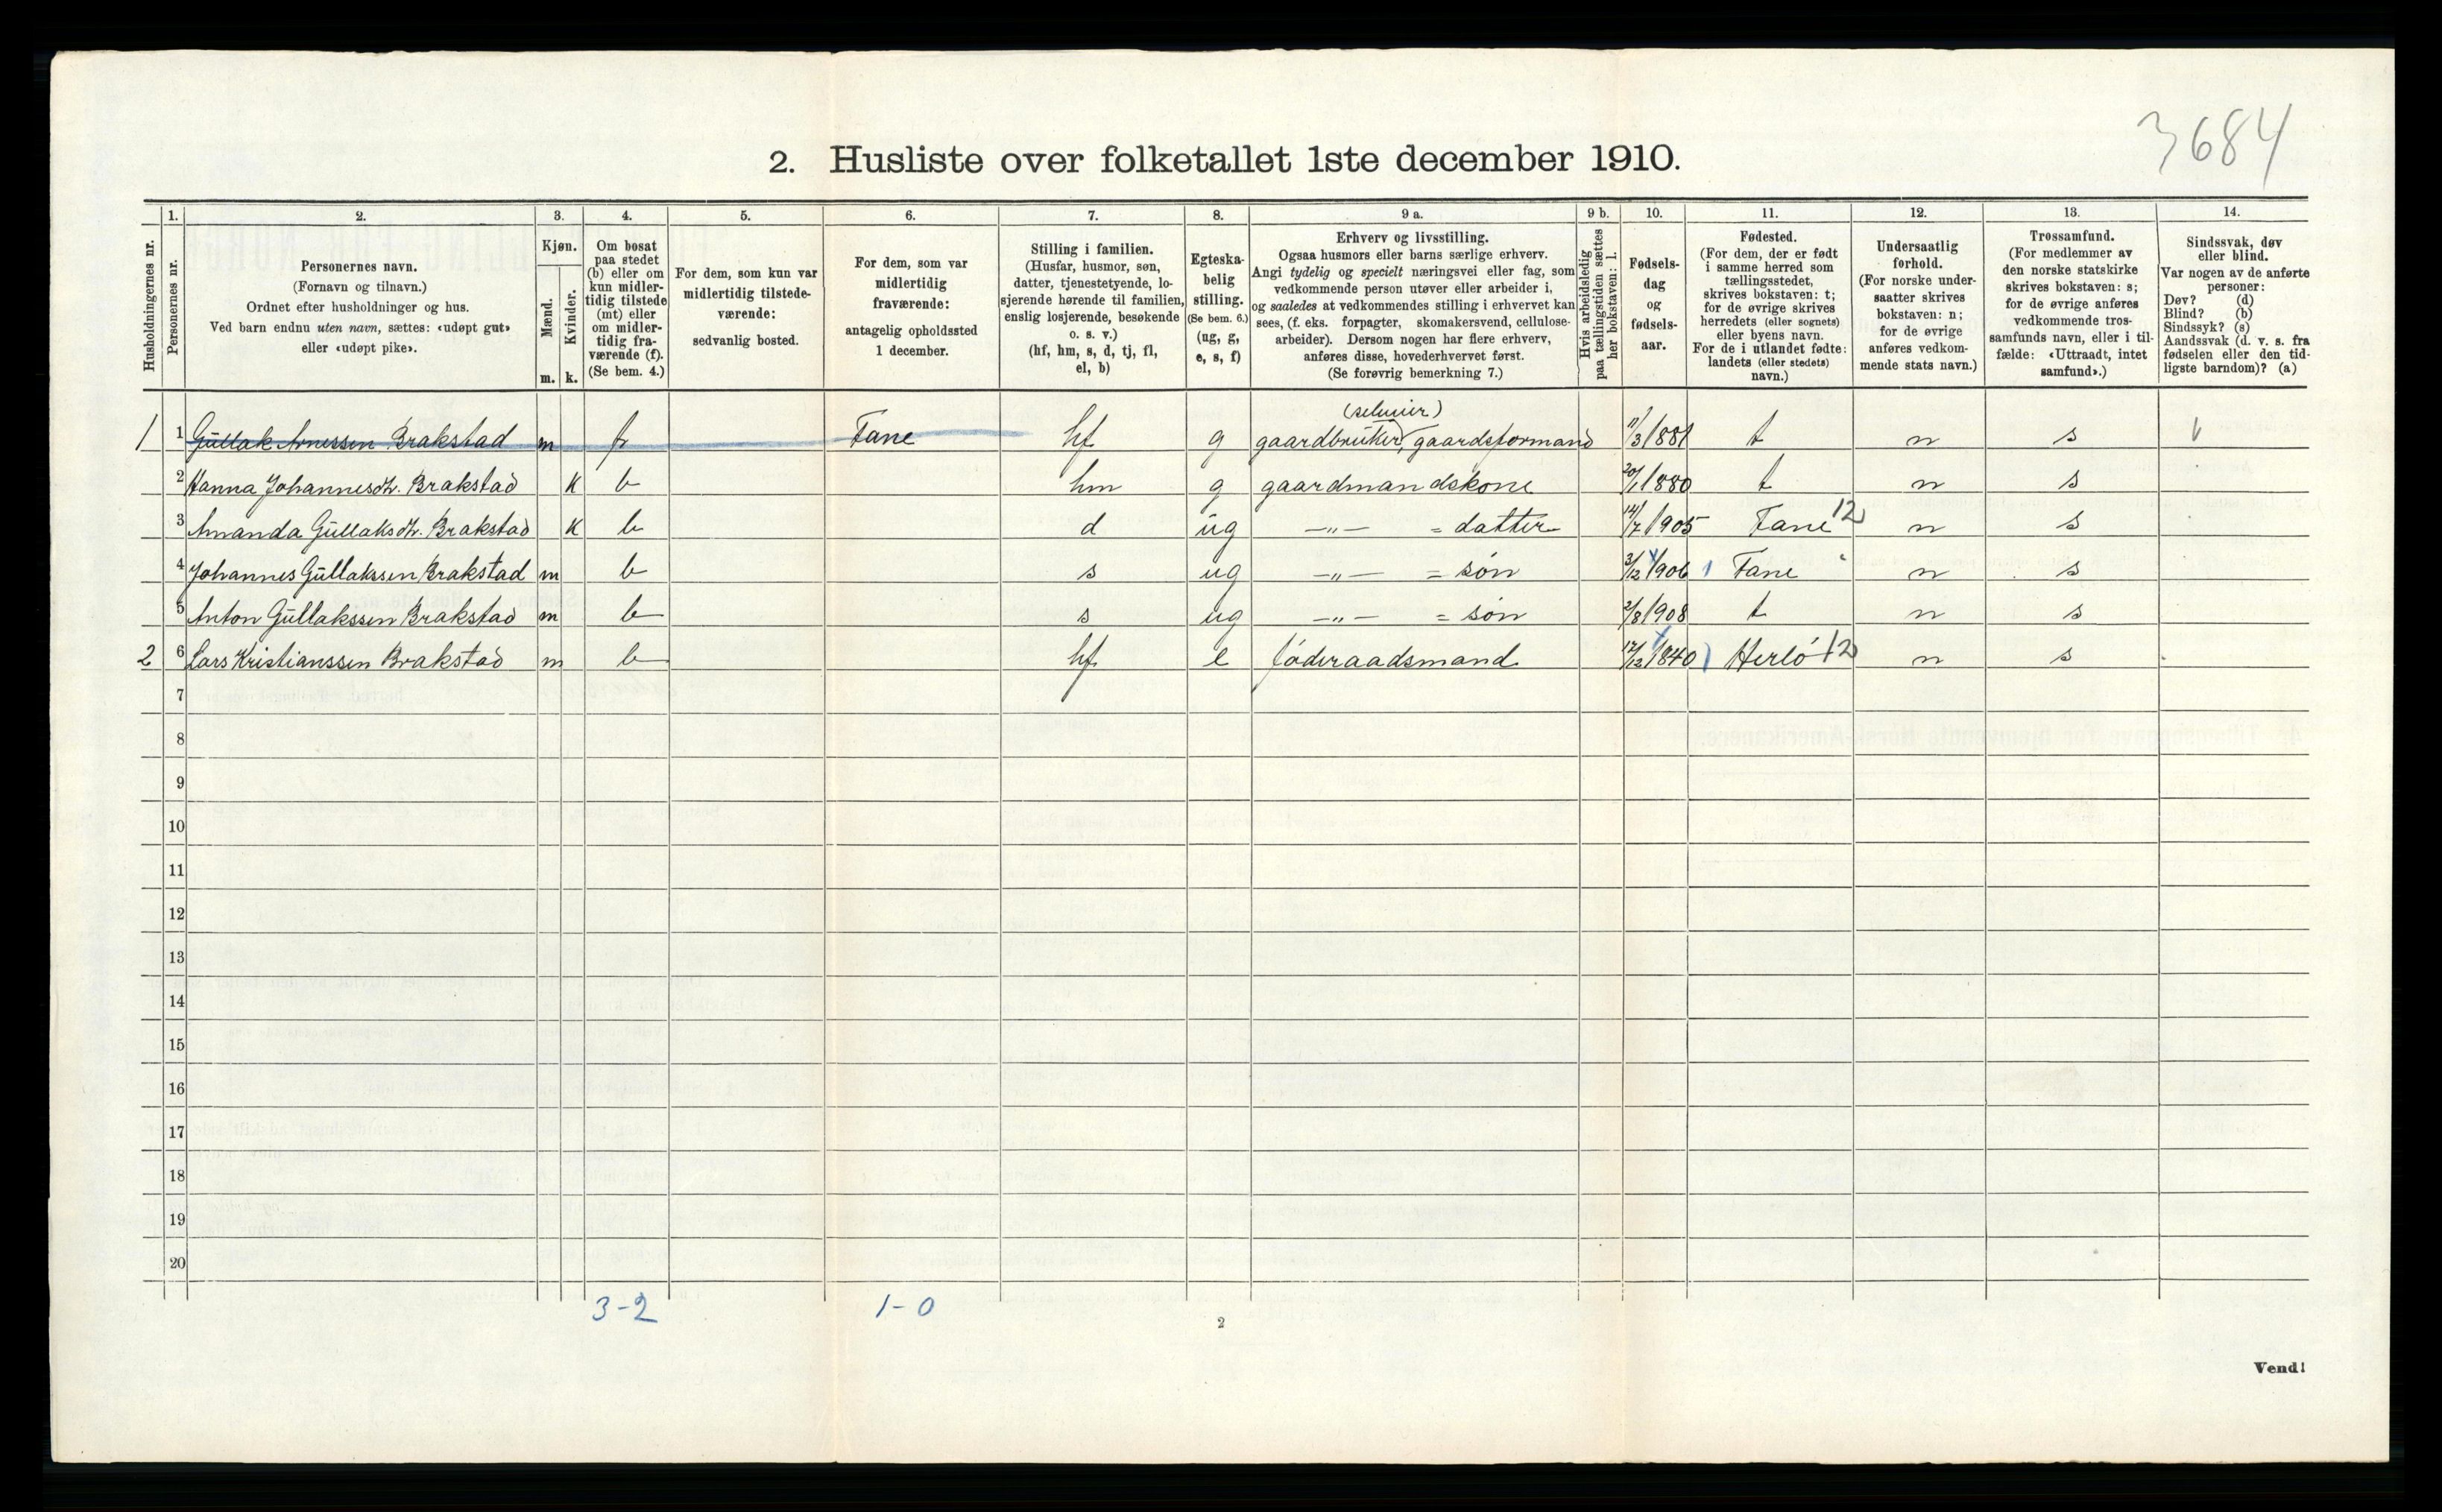 3684
2. Husliste over folketallet 1ste december 1910.
Husholdningernes nr.
1.
Personernes nr.
2.
Personernes navn.
(Fornavn og tilnavn.)
Ordnet efter husholdninger og hus.
Ved barn endnu uten navn, sættes: «udøpt gut»
eller «udøpt pike».
3.
Kjøn.
Mænd.
Kvinder.
m. k.
4.
Om bosat
paa stedet
(b) eller om
kun midler-
tidig tilstede
(mt) eller
om midler-
tidig fra-
værende (f).
(Se bem. 4.)
5.
For dem, som kun var
midlertidig tilstede-
værende:
sedvanlig bosted.
6.
For dem, som var
midlertidig
fraværende:
antagelig opholdssted
1 december.
7.
Stilling i familien.
(Husfar, husmor, søn,
datter, tjenestetyende, lo-
sjerende hørende til familien,
enslig losjerende, besøkende
o. s. v.)
(hf, hm, s, d, tj, fl,
el, b)
8.
Egteska-
belig
stilling.
(Se bem. 6.)
(ug, g,
e, s, f)
9 a.
Erhverv og livsstilling.
Ogsaa husmors eller barns særlige erhverv.
Angi tydelig og specielt næringsvei eller fag, som
vedkommende person utøver eller arbeider i,
og saaledes at vedkommendes stilling i erhvervet kan
sees, (f. eks. forpagter, skomakersvend, cellulose-
arbeider). Dersom nogen har flere erhverv,
anføres disse, hovederhvervet først.
(Se forøvrig bemerkning 7.)
9 b.
Hvis arbeidsledig
paa tællingstiden sættes
her bokstaven: l.
10.
Fødsels-
dag
og
fødsels-
aar.
11.
Fødested.
(For dem, der er født
i samme herred som
tællingsstedet,
skrives bokstaven: t;
for de øvrige skrives
herredets (eller sognets)
eller byens navn.
For de i utlandet fødte:
landets (eller stedets)
navn.)
12.
Undersaatlig
forhold.
(For norske under-
saatter skrives
bokstaven: n;
for de øvrige
anføres vedkom-
mende stats navn.)
13.
Trossamfund.
(For medlemmer av
den norske statskirke
skrives bokstaven: s;
for de øvrige anføres
vedkommende tros-
samfunds navn, eller i til-
fælde: «Uttraadt, intet
samfund».)
14.
Sindssvak, døv
eller blind.
Var nogen av de anførte
personer:
Døv? (d)
Blind? (b)
Sindssyk? (s)
Aandssvak (d. v. s. fra
fødselen eller den tid-
ligste barndom)? (a)
(seluier)
1 1 Gullak Arnessen Brakstad m f Fane hf g gaardbruker, gaardsformand 11/3 1881 t n s
2 Hanna Johannesdt. Brakstad k b hm g gaardmandskone 20/1 1880 t n s
3 Amanda Gullaksdt. Brakstad k b d ug —"— = datter 14/7 1905 Fane 12 n s
4 Johannes Gullakssen Brakstad m b s ug —"— = søn 3/12 1906 Fane " n s
5 Anton Gullakssen Brakstad m b s ug —"— = søn 2/8 1908 t n s
2 6 Lars Kristianssen Brakstad m b hf e føderaadsmand 17/12 1840 Herlö 12 n s
7
8
9
10
11
12
13
14
15
16
17
18
19
20
3-2 1-0
2
Vend!